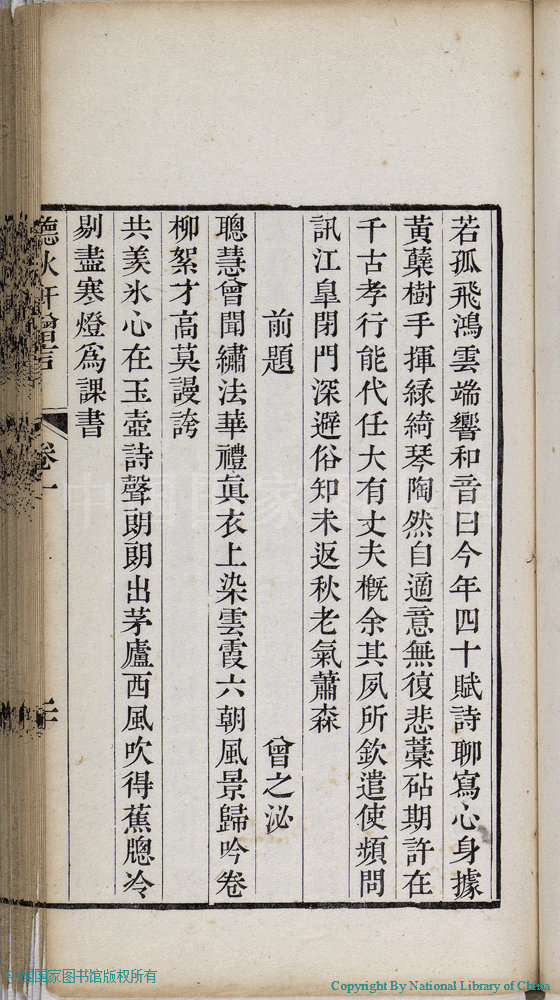 若孤飛鴻雲端響和音曰今年四十賦詩聊寫心身據
黃蘗樹手揮綠綺琴陶然自適意無復悲藁砧期許在
千古孝行能代任大有丈夫概余其夙所欽遣使頻問
訊江臯閉門深避俗知未返秋老氣蕭森
前題　曾之泌
聰慧曾聞繡法華禮眞衣上染雲霞六朝風景歸吟卷
柳絮才高莫謾誇
共羨氷心在玉壺詩聲朗朗出茅廬西風吹得蕉牕冷
剔盡寒燈爲課書
聽秋軒贈言　卷一
中国国家
中国国家图书馆版权所有
Copyright By National Library of China